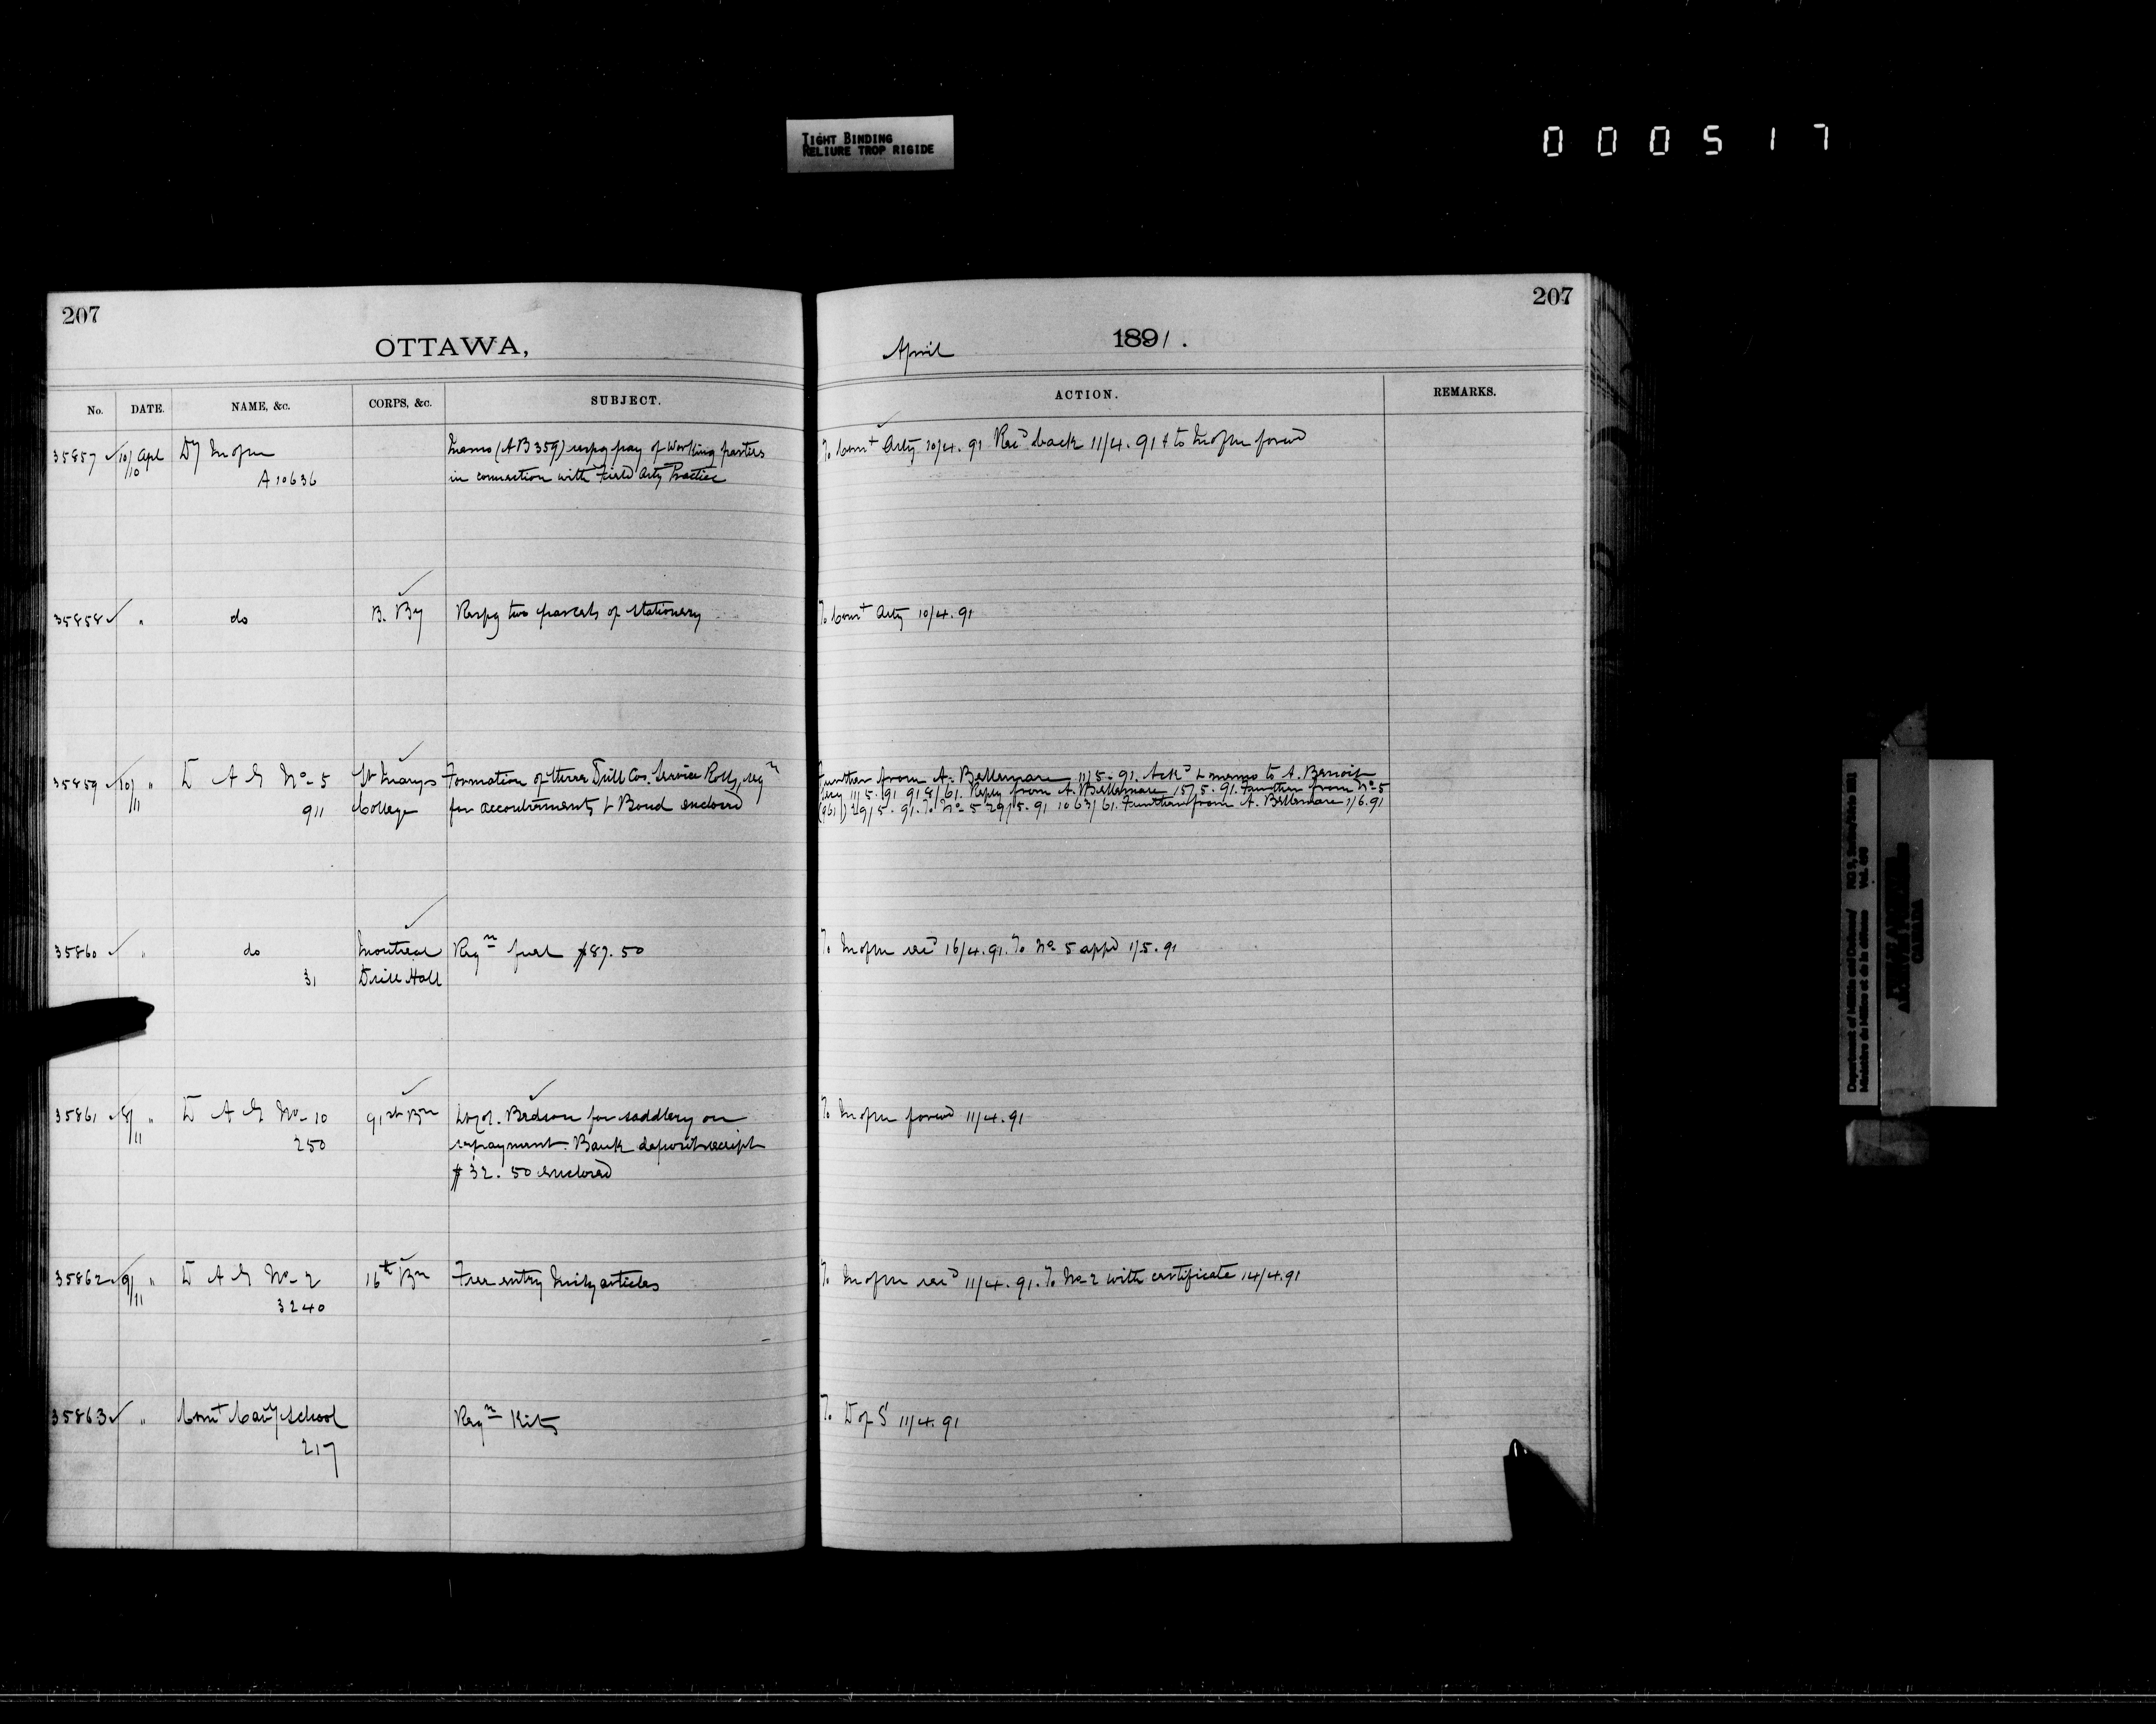 TIGHT BINDING
RELIURE TROP RIGIDE
000517
207
OTTAWA,
No. DATE. NAME, &c. CORPS, &c. SUBJECT.
35857 10/10 Apl Dy M of M Memo (AB 359) respg pay of Working parties
A 10636 in connection with Field Arty Practice
35858 " do B. By Respg two parcels of stationery
35859 10/11 " D A G No 5 St Mary's Formation of three Drill Cos. Service Rolls, reqn
911 College for accoutrements & Bond enclosed
35860 " do Montreal Reqn fuel $87.50
31 Drill Hall
35861 8/11 " D A G No 10 91st Bn Bedson for saddlery on
250 repayment. Bank deposit receipt
$32.50 enclosed
35862 9/11 " D A G No 2 16th Bn Free entry Mily articles
3240
35863 " Comt Cavy School Reqn Kits
217
207
April 1891.
ACTION. REMARKS.
To Comt Arty 10/4.91 Recd back 11/4.91 & to M of M forwd
To Comt Arty 10/4.91
Further from A. Bellemare 11/5.91. Ackd & memo to A. Benoit
11/5.91 918/61. Reply from A. Bellemare 15/5.91. Further from No 5
(961) 29/5.91. To No 5 29/5.91 1063/61. Further from A. Bellemare 1/6.91
To M of M recd 16/4.91. To No 5 appd 1/5.91
To M of M forwd 11/4.91
To M of M recd 11/4.91. To No 2 with certificate 14/4.91
To D of S 11/4.91
Department of Militia and Defence
Ministère de la Milice et de la défense